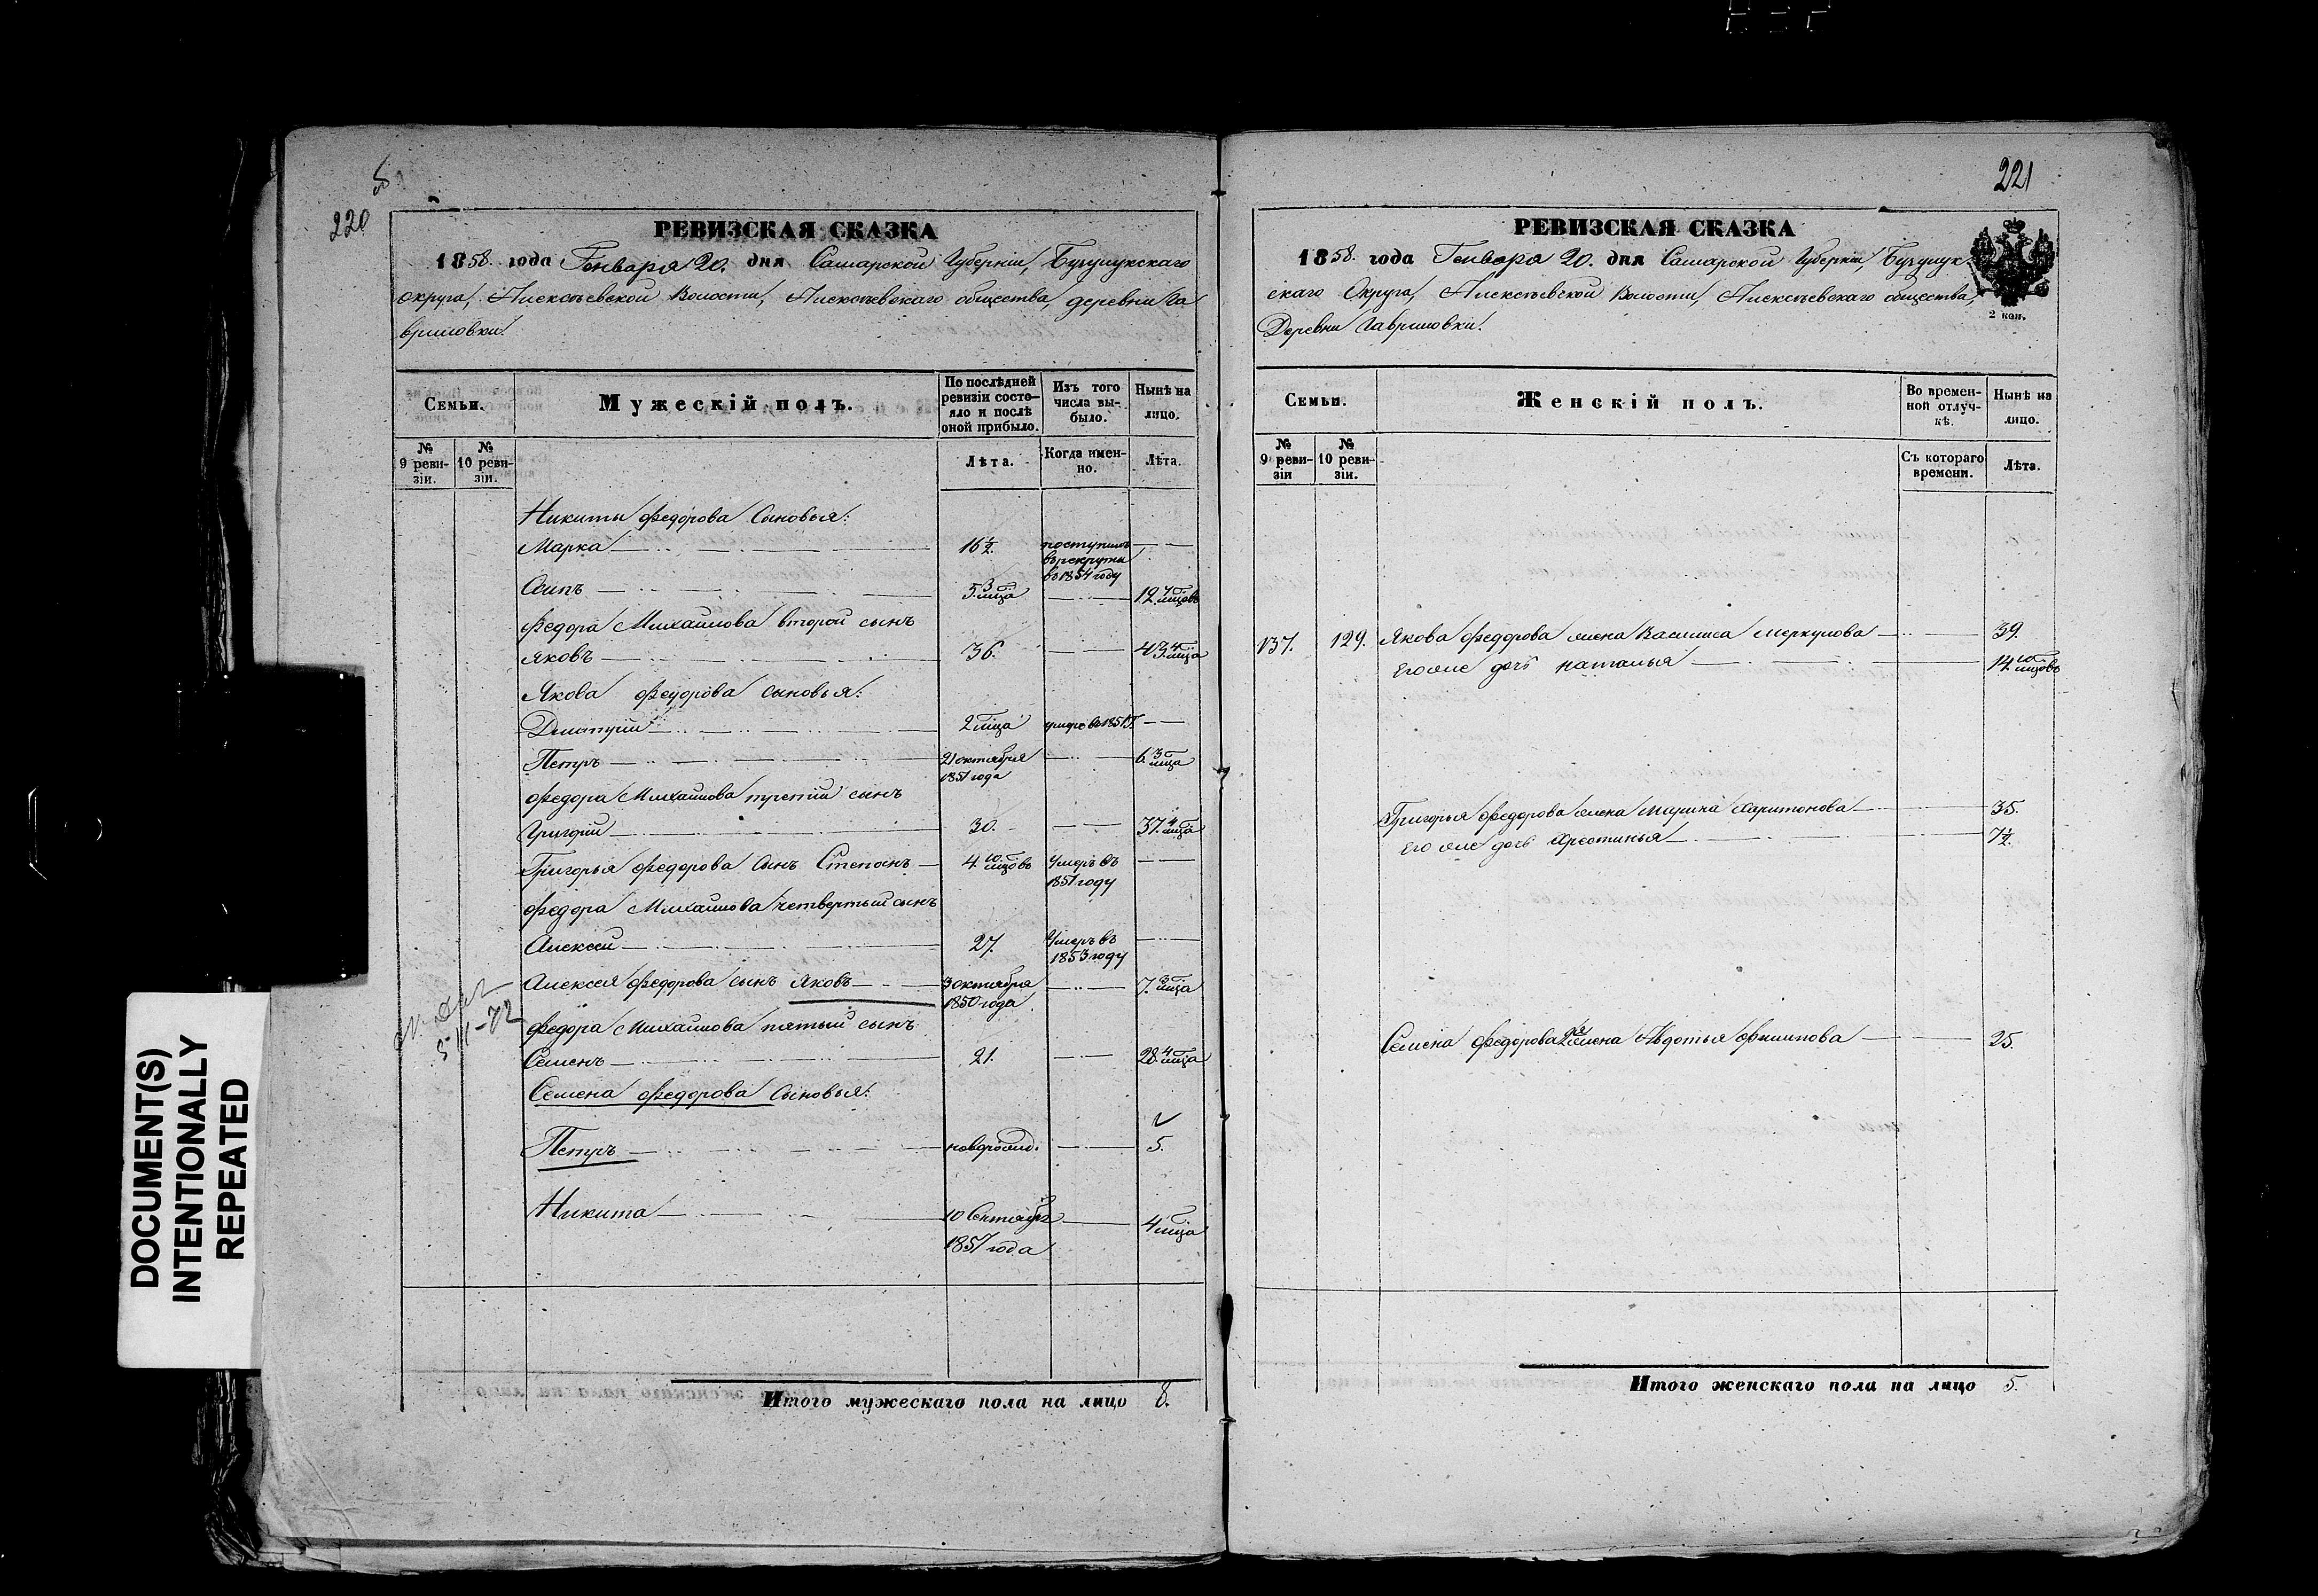 220
РЕВИЗСКАЯ СКАЗКА
1858. года Генваря 20. дня Самарской Губерніи, Бузулукскаго
округа, Алексѣевской Волости, Алексѣевскаго общества, деревни Га
вриловки.
Семьи. Мужескій полъ. По послѣдней ревизіи состояло и послѣ оной прибыло. Изъ того числа выбыло. Нынѣ на лицо.
№ 9 ревизіи. № 10 ревизіи. Лѣта. Когда именно. Лѣта.
Никиты Федорова Сыновья:
Марка 16½. поступилъ в рекруты в 1854 году
Осипъ 5. 3 мца 12. 4 мцовъ
Федора Михайлова второй сынъ
Яковъ 36. 43. 4 мца
Якова Федорова сыновья:
Дмитрій 2 мца умре въ 1851 г.
Петръ 21 октября 1851 года 6. 3 мца
Федора Михайлова третій сынъ
Григорій 30. 37. 4 мца
Григорья Федорова Сынъ Степанъ 4. 10 мцовъ Умеръ въ 1851 году
Федора Михайлова четвертый сынъ
Алексей 27. Умеръ въ 1853 году
Алексея Федорова сынъ Яковъ 3 октября 1850 года 7. 3 мца
5/II-72
Федора Михайлова пятый сынъ
Семенъ 21. 28. 4 мца
Семена Федорова Сыновья:
Петръ новорожд. 5.
Никита 10 Сентября 1857 года 4 мца
Итого мужескаго пола на лицо 8.
DOCUMENT(S)
INTENTIONALLY
REPEATED
221
РЕВИЗСКАЯ СКАЗКА
1858. года Генваря 20. дня Самарской Губерніи, Бузулук
скаго Округа, Алексѣевской Волости, Алексѣевскаго общества,
Деревни Гавриловки.
2 коп.
Семьи. Женскій полъ. Во временной отлучкѣ. Нынѣ на лицо.
№ 9 ревизіи № 10 ревизіи. Съ котораго времени. Лѣта.
137. 129. Якова Федорова жена Василиса Меркулова 39.
Его же дочь Наталья 14. 10 мцовъ
Григорья Федорова жена Марина Харитонова 35.
Его же дочь Хрестинья 7½.
Семена Федорова 2я жена Авдотья Филипова 25.
Итого женскаго пола на лицо 5.